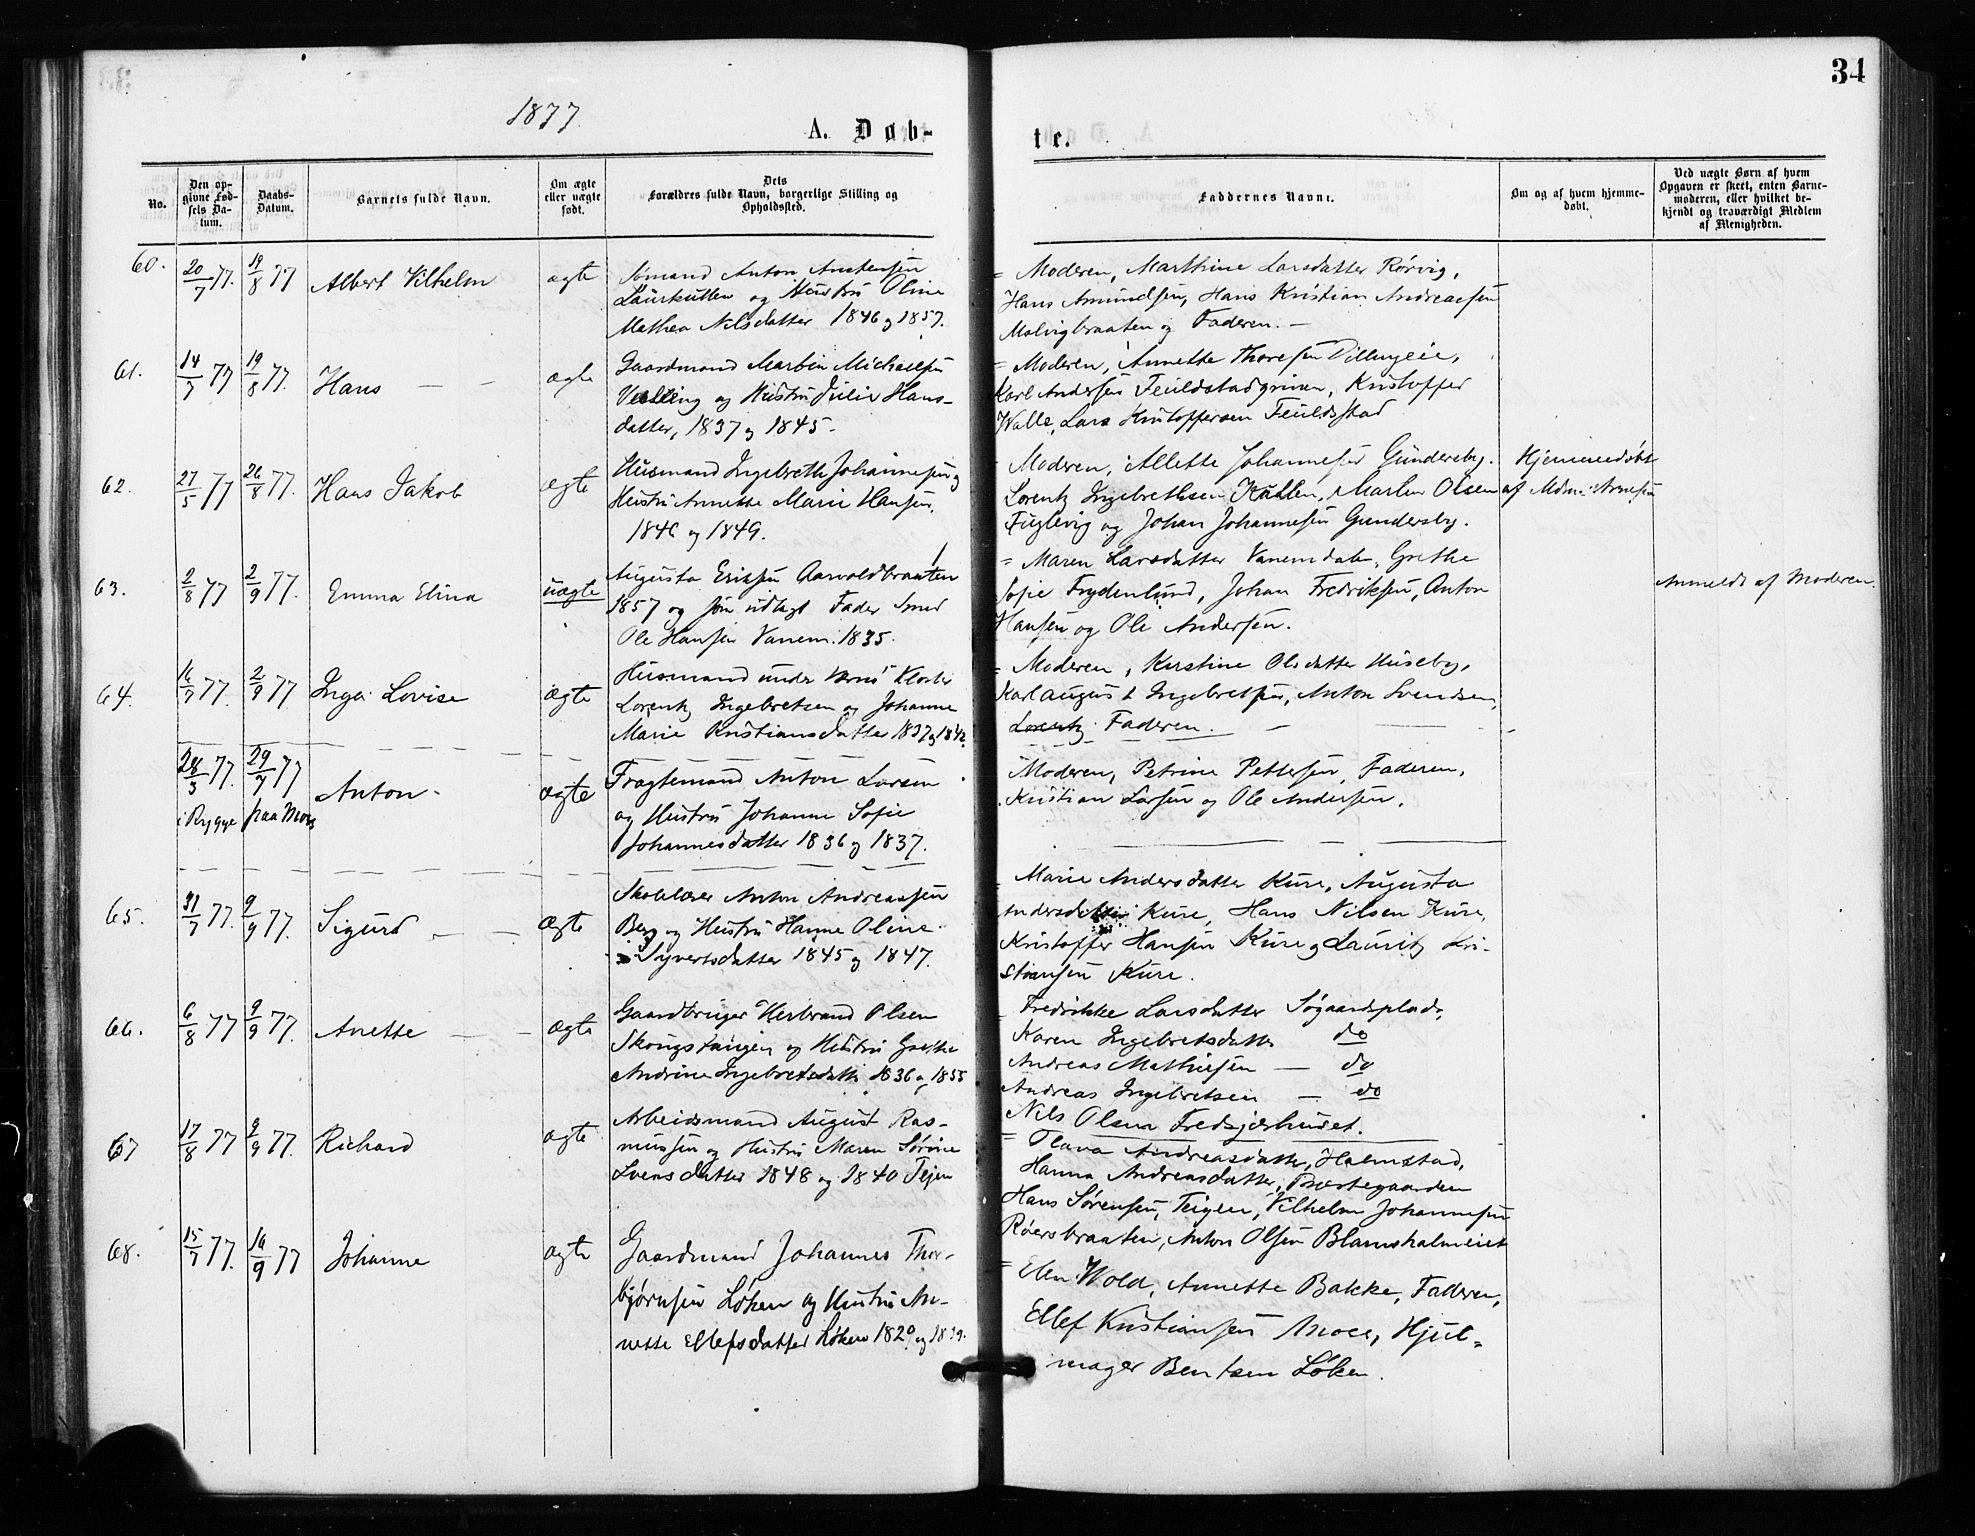 34
1877
A. Døb-
te.
No.
Den op-
givne Fød-
sels Da-
tum.
Daabs-
Datum.
Barnets fulde Navn.
Om ægte
eller uægte
født.
Dets
Forældres fulde Navn, borgerlige Stilling og
Opholdssted.
Faddernes Navne.
Om og af hvem hjemme-
døbt.
Ved uægte Børn af hvem
Opgaven er skeet, enten Barne-
moderen, eller hvilket be-
kjendt og troværdigt Medlem
af Menigheden.
60. 20/7 77. 19/8 77 Albert Vilhelm ægte
Anton
og Hustru Oline
Mathea Nilsdatter 1846 og 1857.
= Moderen, Marthine Larsdatter Rørvig,
Hans Amundsen, Hans Kristian Andreassen
Molvigbraaten og Faderen. —
61. 14/7 77 19/8 77. Hans — — ægte
Gaardmand Martin Michaelsen
og Hustru Julie Hans-
datter, 1837 og 1845.
= Moderen, Annette Thoresen
Karl Andersen Kristoffer
Walle, Lars Kristoffersen
62. 27/5 77 26/8 77. Hans Jakob ægte
Husmand Ingebreth Johannesen og
Hustru Annette Marie Hansen,
1846 og 1849.
Moderen, Allette Johannesen Gundersby.
Lorentz Ingebrethsen Kullen, Martin Olsen
Fuglevig og Johan Johannesen Gundersby.
Hjemmedøbt
af
63. 2/8 77 2/9 77. Emma Elina uægte
Augusta Eriksen Aarvoldbraaten
1857 og som udlagt Fader Smed
Ole Hansen Vanem. 1835.
= Maren Larsdatter Grethe
Sofie Frydenlund, Johan Fredriksen, Anton
Hansen og Ole Andersen.
Anmeldt af Moderen.
64. 16/7 77. 2/9 77 Inga Lovise ægte
Husmand under Værne Kloster
Lorentz Ingebretsen og Johanne
Marie Kristiansdatter 1837 og 1842.
= Moderen, Kirstine Olsdatter Huseby,
Karl August Ingebretsen, Anton Svendsen,
Lorentz Faderen. — —
28/3 77. 29/7 77 Anton ægte
i Rygge paa Moss
Fragtemand Anton Larsen
og Hustru Johanne Sofie
Johannesdatter 1836 og 1837.
Moderen, Petrine Pettersen, Faderen,
Kristian Larsen og Ole Andersen.
65. 31/7 77. 9/9 77. Sigurd — — ægte
Skolelærer Anton Andreassen
Berg og Hustru Hanne Oline
Syvertsdatter 1845 og 1847.
Marie Andersdatter Kure, Augusta
Andersdatter Kure, Hans Nilsen Kure,
Kristoffer Hansen Kure og Lauritz Kri-
stiansen Kure.
66. 6/8 77 9/9 77. Anette — — ægte
Gaardbruger Herbrand Olsen
og Hustru Grethe
Andrine Ingebretsdatter 1836 og 1855
Fredrikke Larsdatter Søgaardsplads,
Karen Ingebretsdatter do
Andreas Mathiesen — do
Andreas Ingebretsen — do
Nils Olsen
67 17/8 77 9/9 77. Richard ægte
Arbeidsmand August Ras-
mussen og Hustru Maren Sørine
Svensdatter 1848 og 1840 Tejen
= Andreasdatter, Halmstad,
Hanna Andreasdatter, Præstegaarden
Hans Sørensen, Teigen, Vilhelm Johannesen
Røersbraaten, Anton Olsen
68. 15/7 77. 16/9 77 Johanne ægte
Gaardmand Johannes Thor-
bjørnsen Løken og Hustru An-
nette Ellefsdatter Løken 1820 og 1839.
= Elen Wold, Annette Bakke, Faderen,
Ellef Kristiansen Moer, Hjul-
mager Bentsen Løken.